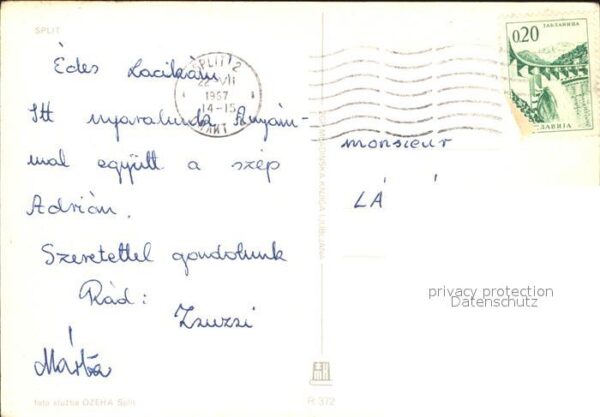 SPLIT
Édes Lacikám
Itt nyaralunk Anyám-
mal együtt a szép
Adrián.
Szeretettel gondolunk
Rád:
Zsuzsi
Márta
foto služba OZEHA Split
SPLIT 2
1967
14-15
ЈАБЛАНИЦА
0,20
monsieur
LÁ
privacy protection
Datenschutz
R 372